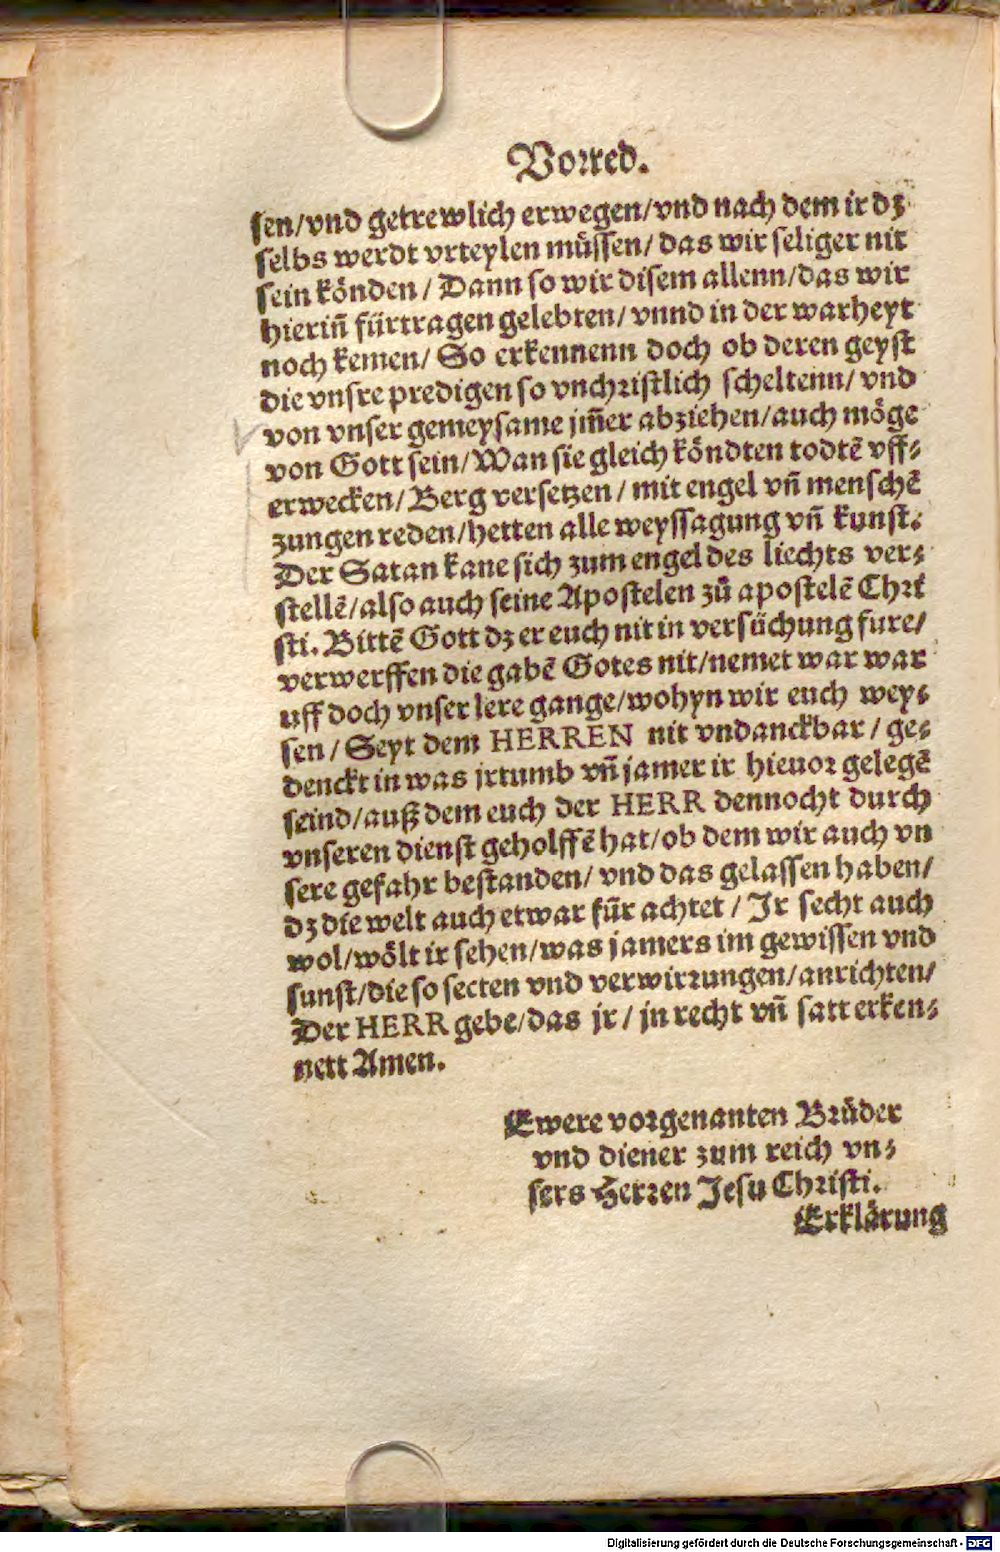 Vorred.
sen/vnd getrewlich erwegen/vnd nach dem ir dz
selbs werdt vrteylen müssen/ das wir seliger nit
sein könden / Dann so wir disem allenn/das wir
hieriñ fürtragen gelebten/ vnnd in der warheyt
noch kemen/ So erkennenn doch ob deren geyst
die vnsre predigen so vnchristlich scheltenn/ vnd
von vnser gemeysame jm̃er abziehen/auch möge
von Gott sein/Wan sie gleich köndten todtẽ vff⸗
erwecken/ Berg versetzen / mit engel vñ menschẽ
zungen reden/hetten alle weyssagung vñ kunst.
Der Satan kane sich zum engel des liechts ver⸗
stellẽ/also auch seine Apostelen zů apostelẽ Chri
sti. Bittẽ Gott dz er euch nit in versůchung fure/
verwerffen die gabẽ Gotes nit/nemet war war
uff doch vnser lere gange/wohyn wir euch wey⸗
sen / Seyt dem HERREN nit vndanckbar / ge⸗
denckt in was jrtumb vñ jamer ir hieuor gelegẽ
seind/auß dem euch der HERR dennocht durch
vnseren dienst geholffẽ hat/ob dem wir auch vn
sere gefahr bestanden/ vnd das gelassen haben/
dz die welt auch etwar für achtet / Ir secht auch
wol/wölt ir sehen/was jamers im gewissen vnd
sunst/die so secten vnd verwirrungen/anrichten/
Der HERR gebe/das jr / jn recht vñ satt erken⸗
nett Amen.
Ewere vorgenanten Brüder
vnd diener zum reich vn⸗
sers Herren Jesu Christi.
Erklärung
Digitalisierung gefördert durch die Deutsche Forschungsgemeinschaft - DFG